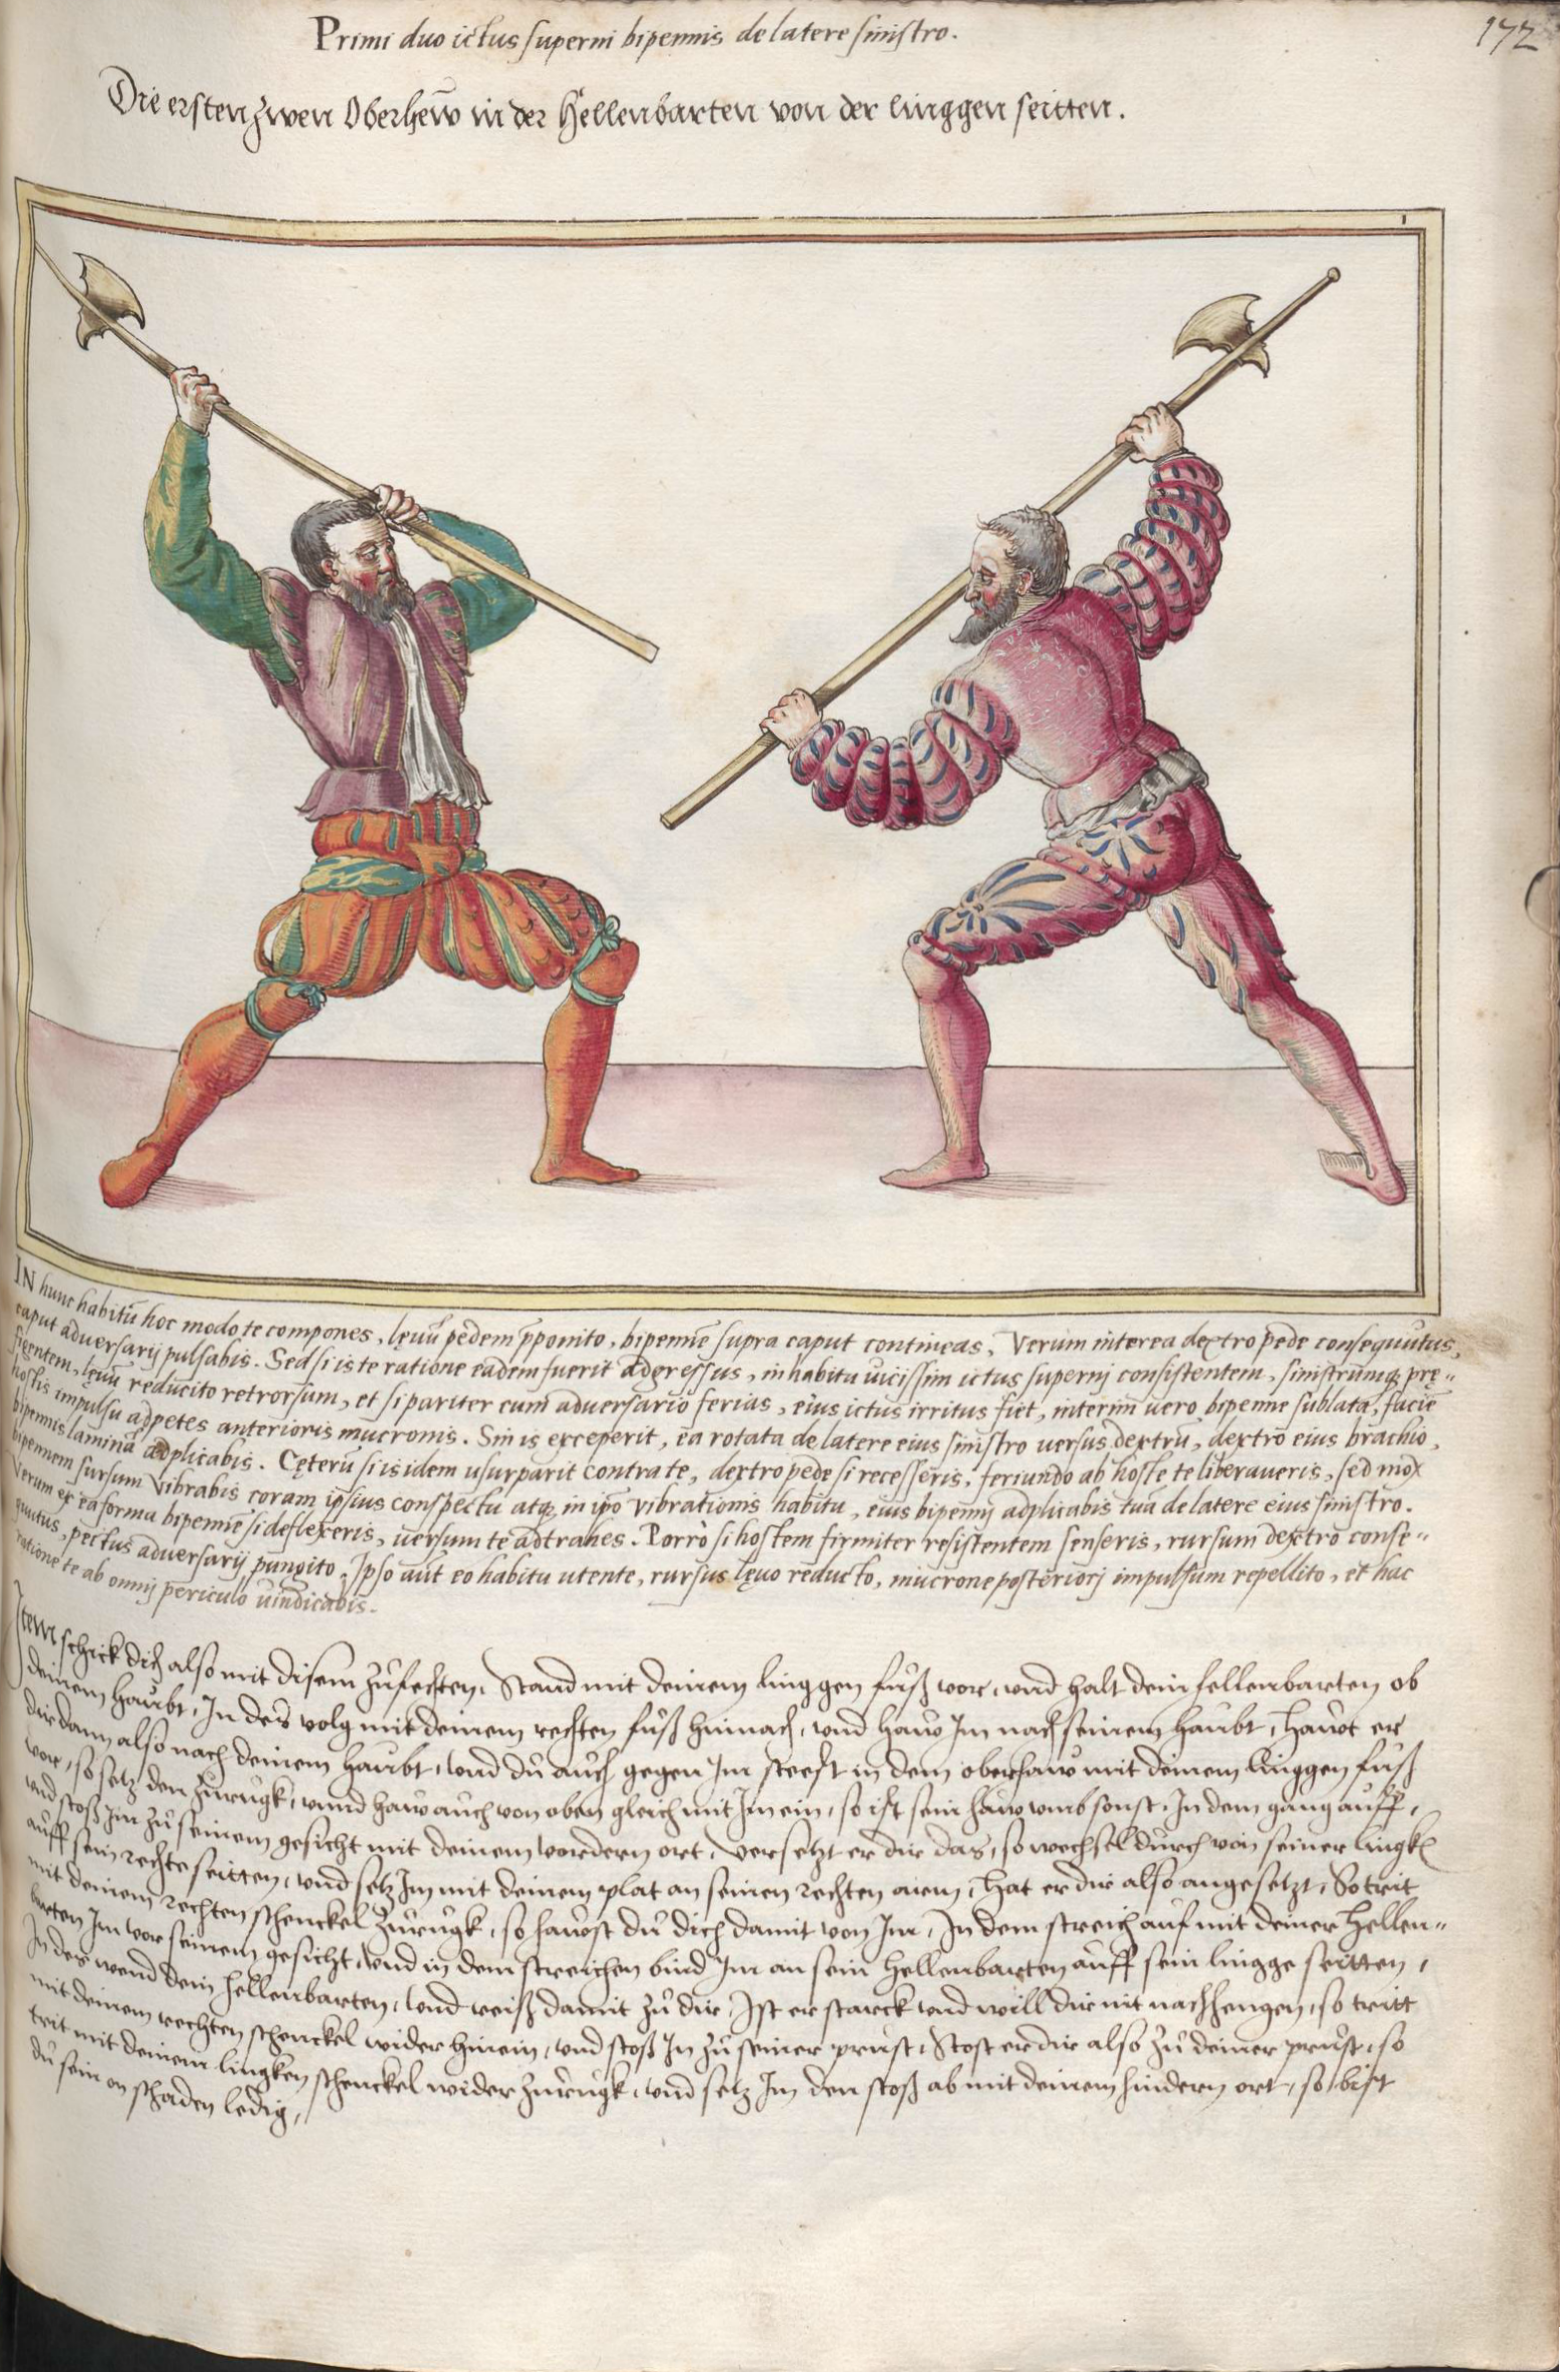 172
Primi duo ictus superni bipennis de latere sinistro.
Die ersten zwen Oberhew in der Hellenbarten von der linggen seitten.
1
IN hunc habitū hoc modo te compones, lęuū pedem p̄ponito, bipennē supra caput contineas, Verum interea dextro pede consequutus,
caput aduersarij pulsabis. Sed si is te ratione eadem fuerit adgressus, in habitu vicissim ictus supernj consistentem, sinistrūmq; prę„
figentem, lęuū reducito retrorsum, et si pariter cum aduersario ferias, eius ictus irritus fiet, interim uero bipenne sublata, faciē
hostis impulsu adpetes anterioris mucronis. Sin is exceperit, ea rotata de latere eius sinistro uersus dextrū, dextro eius brachio,
bipennis laminā adplicabis. Cęterū si is idem usurparit contra te, dextro pede si recesseris, feriundo ab hoste te liberaueris, sed mox
bipennem sursum vibrabis coram ipsius conspectu atq; in ip̄o vibrationis habitu, eius bipennj adplicabis tuā de latere eius sinistro.
Verum ex ea forma bipennē si deflexeris, uersum te adtrahes. Porrò si hostem firmiter resistentem senseris, rursum dextro conse„
quutus, pectus aduersarij pungito. Ipso aūt eo habitu utente, rursus lęuo reducto, mucrone posteriorj impulsum repellito, et hac
ratione te ab omnj periculo uindicabis.
Item schick dich also mit disem zůfechten, Stand mit deinem linggen fůß vor, vnd halt dein hellenbarten ob
deinem haubt, In des volg mit deinem rechten fůß hinnach, vnd haw Im nach seinem haubt, hawt er
dir dann also nach deinem haubt, vnd du auch gegen Im steest in dem oberhaw mit deinem linggen fůß
vor, so setz den zurugk, vnnd haw auch von oben gleich mit Im ein, so ist sein haw vmb sonst, In dem gang auff,
vnd stoß Im zů seinem gesicht mit deinem vordern ort, versetzt er dir das, so wechsel durch von seiner lingkē
auff sein rechte seitten, vnd setz Im mit deinem plat an seinen rechten arm, Hat er dir also angesetzt, So trit
mit deinem rechten schenckel zurugk, so hawst du dich damit von Im, In dem streich auf mit deiner Hellen„
barten Im vor seinem gesicht, vnd in dem streichen bind Im an sein hellenbarten auff sein lingge seitten,
In des wend dein hellenbarten, vnd reiß damit zů dir, Ist er starck vnd will dir nit nachhengen, so tritt
mit deinem rechten schenckel wider hinein, vnd stoß In zů seiner prust, Stost er dir also zů deiner prust, so
trit mit deinem lingken schenckel wider zurugk, vnd setz Im den stoß ab mit deinem hindern ort, so bist
du sein on schaden ledig,